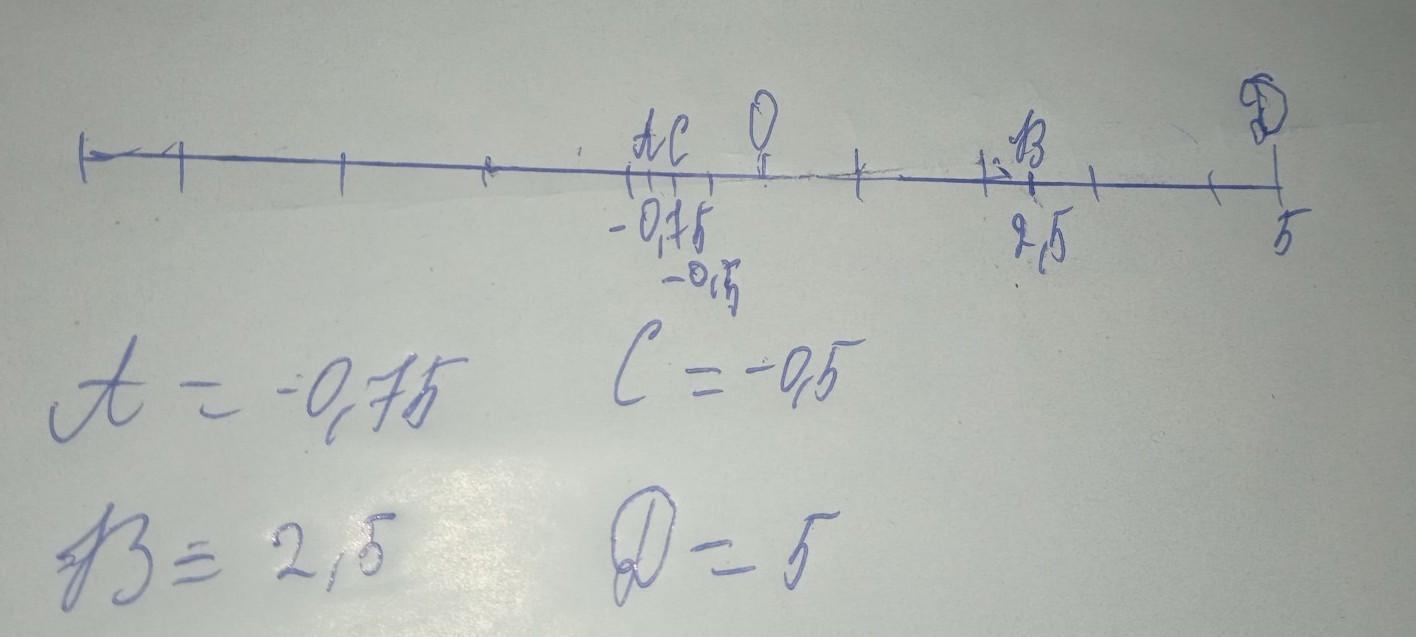 A C O B D
-0,75 2,5 5
-0,5
A = -0,75 C = -0,5
B = 2,5 D = 5